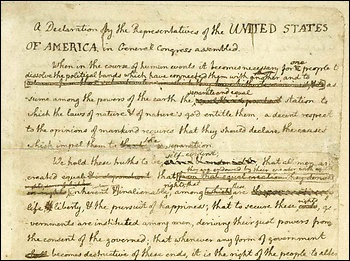 A Declaration by the Representatives of the UNITED STATES
OF AMERICA, in General Congress assembled.
When in the course of human events it becomes necessary for one people to
dissolve the political bands which have connected them with another, and to
as-
separate and equal
sume among the powers of the earth the station to
which the laws of nature & of nature's god entitle them, a decent respect
to the opinions of mankind requires that they should declare the causes
which impel them to the separation.
self-evident
We hold these truths to be that all men are
they are endowed by their creator with
created equal that
rights; that
inherent & inalienable among are
life, & liberty, & the pursuit of happiness; that to secure these rights, go-
vernments are instituted among men, deriving their just powers from
the consent of the governed; that whenever any form of government
becomes destructive of these ends, it is the right of the people to alter